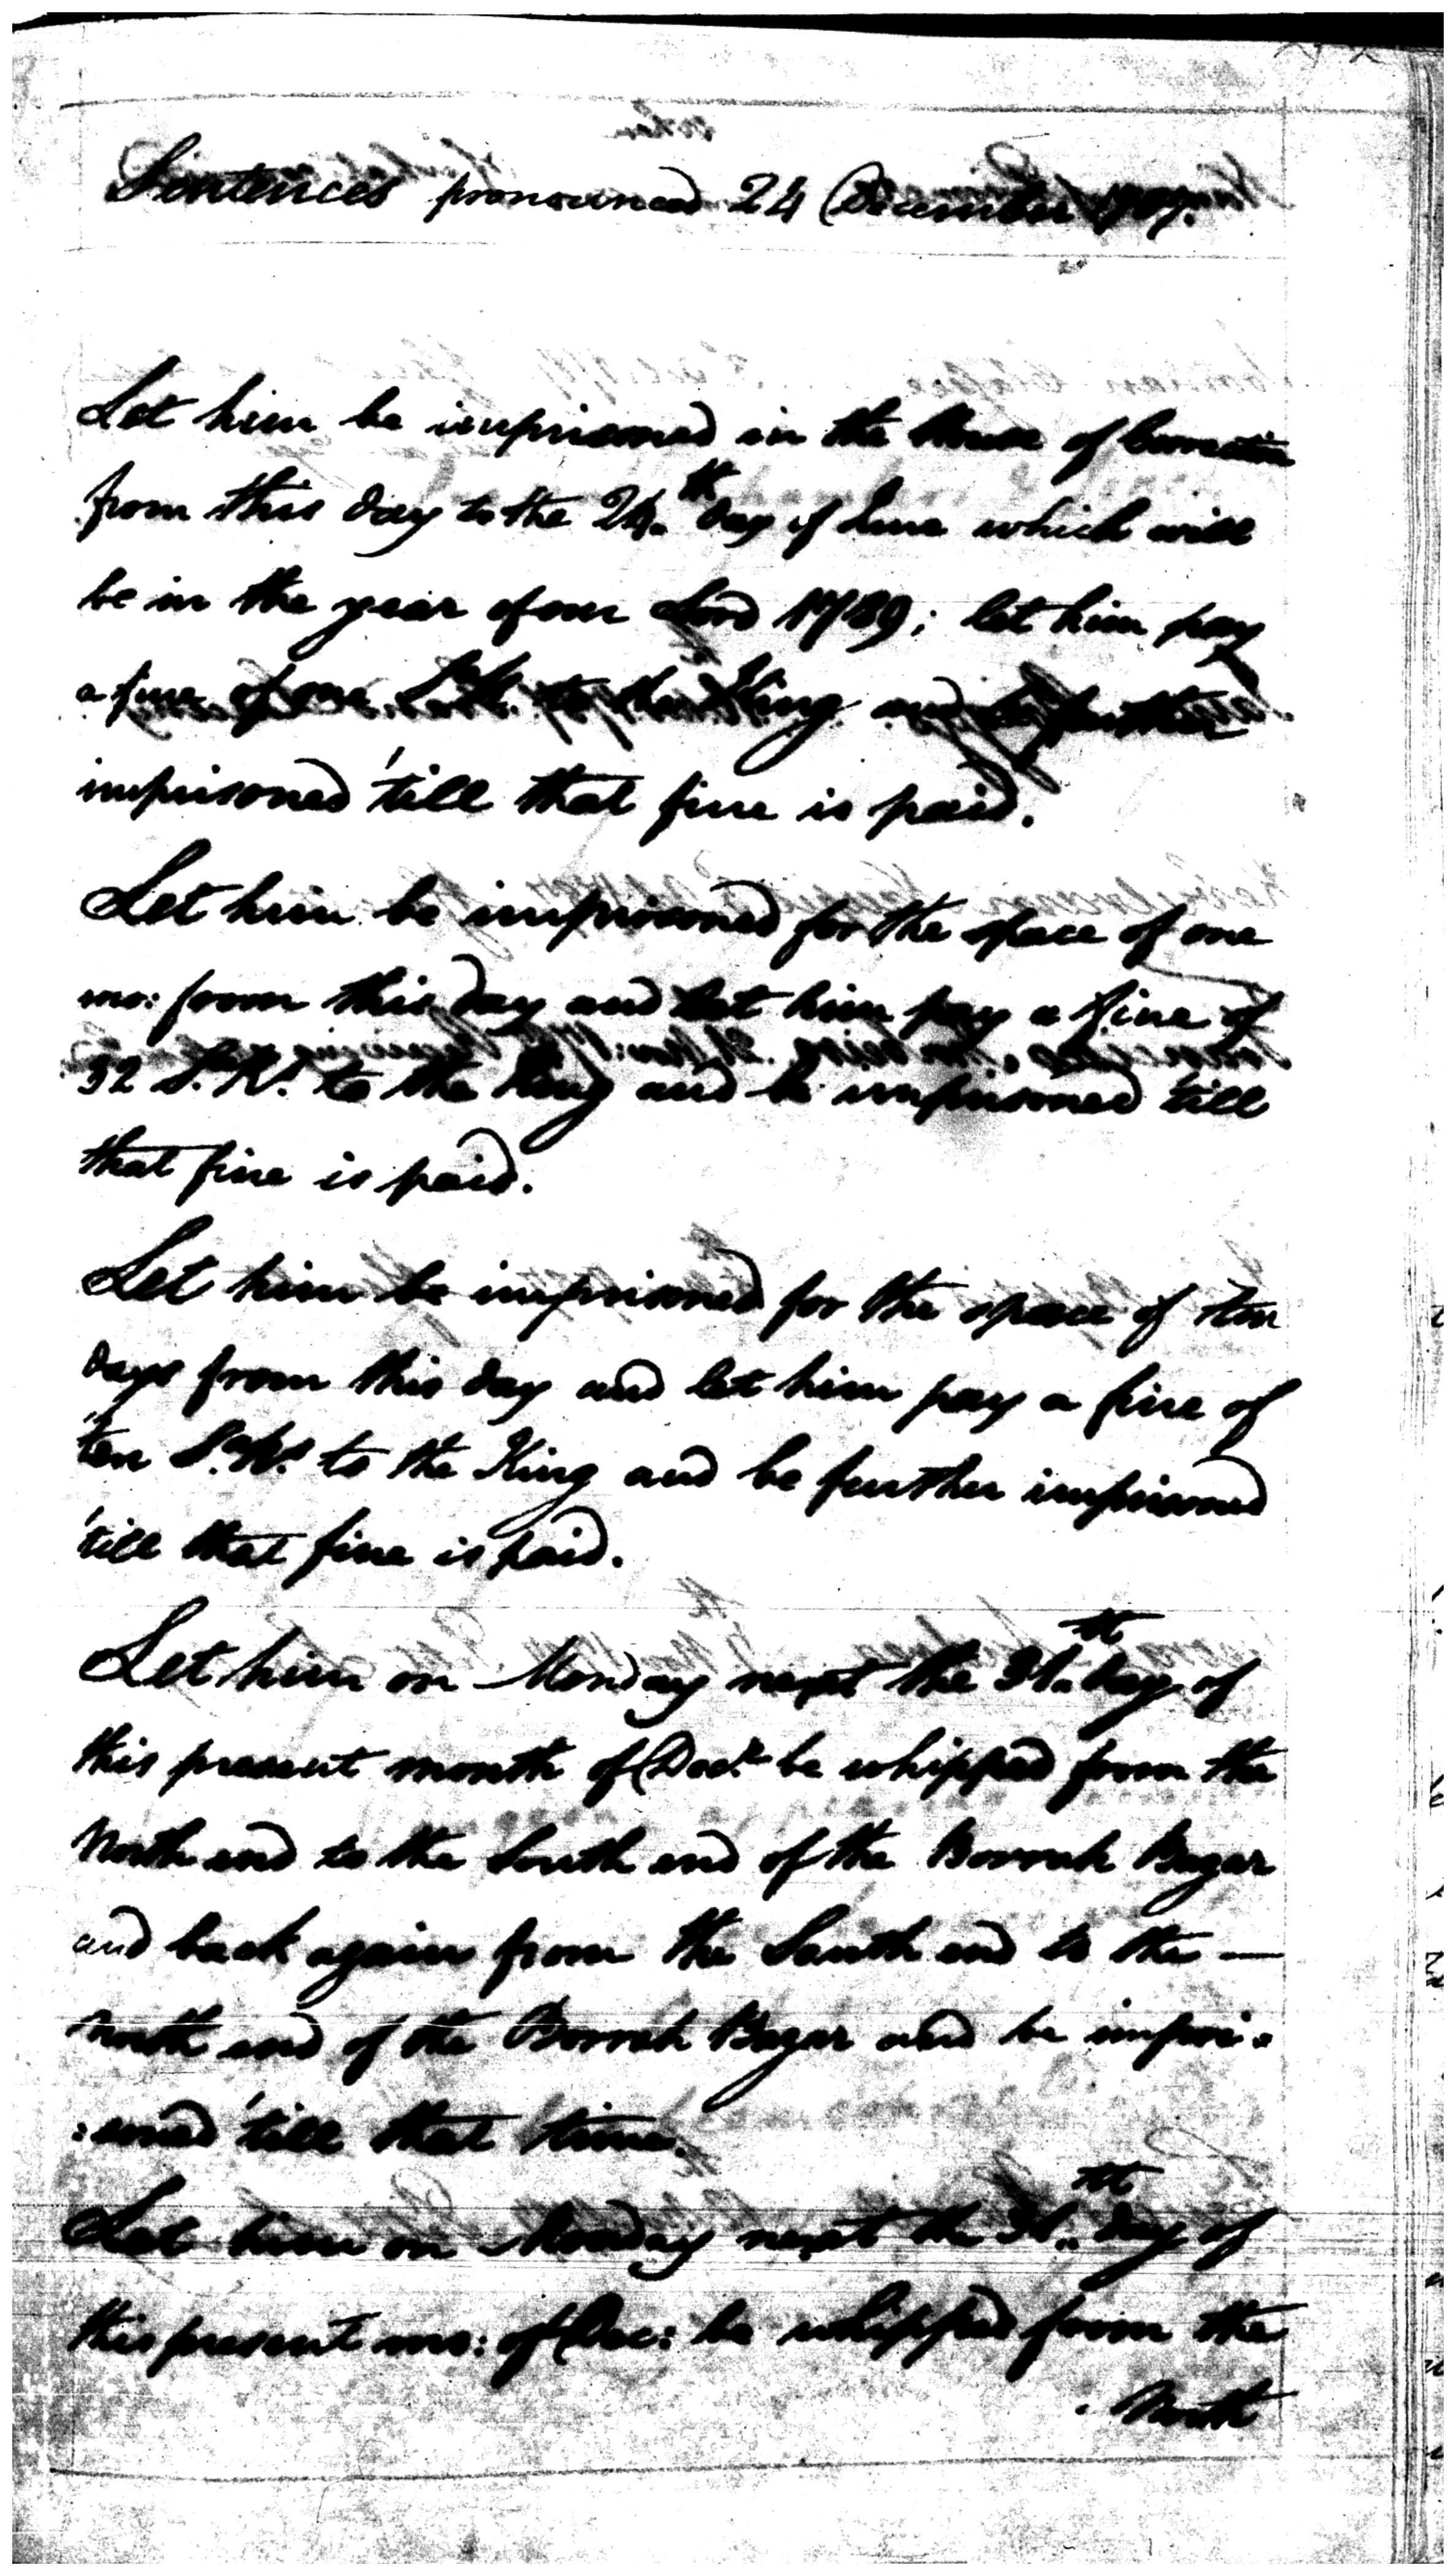 Sentences pronounced 24 December 1787.
Let him be imprisoned in the House of Correction
from this day to the 24.th day of June which will
be in the year of our Lord 1789; let him pay
a fine of one S.R. to the King and be further
imprisoned 'till that fine is paid.
Let him be imprisoned for the space of one
mo: from this day and let him pay a fine of
32 S.Rs. to the King and be imprisoned till
that fine is paid.
Let him be imprisoned for the space of ten
days from this day and let him pay a fine of
ten S.Rs. to the King and be further imprisoned
'till that fine is paid.
Let him on Monday next the 31.th day of
this present month of Decr. be whipped from the
North end to the South end of the Borrah Bazar
and back again from the South end to the —
North end of the Borrah Bazar and be impri:
:soned 'till that time.
Let him on Monday next the 31.th day of
this present mo: of Dec: be whipped from the
North